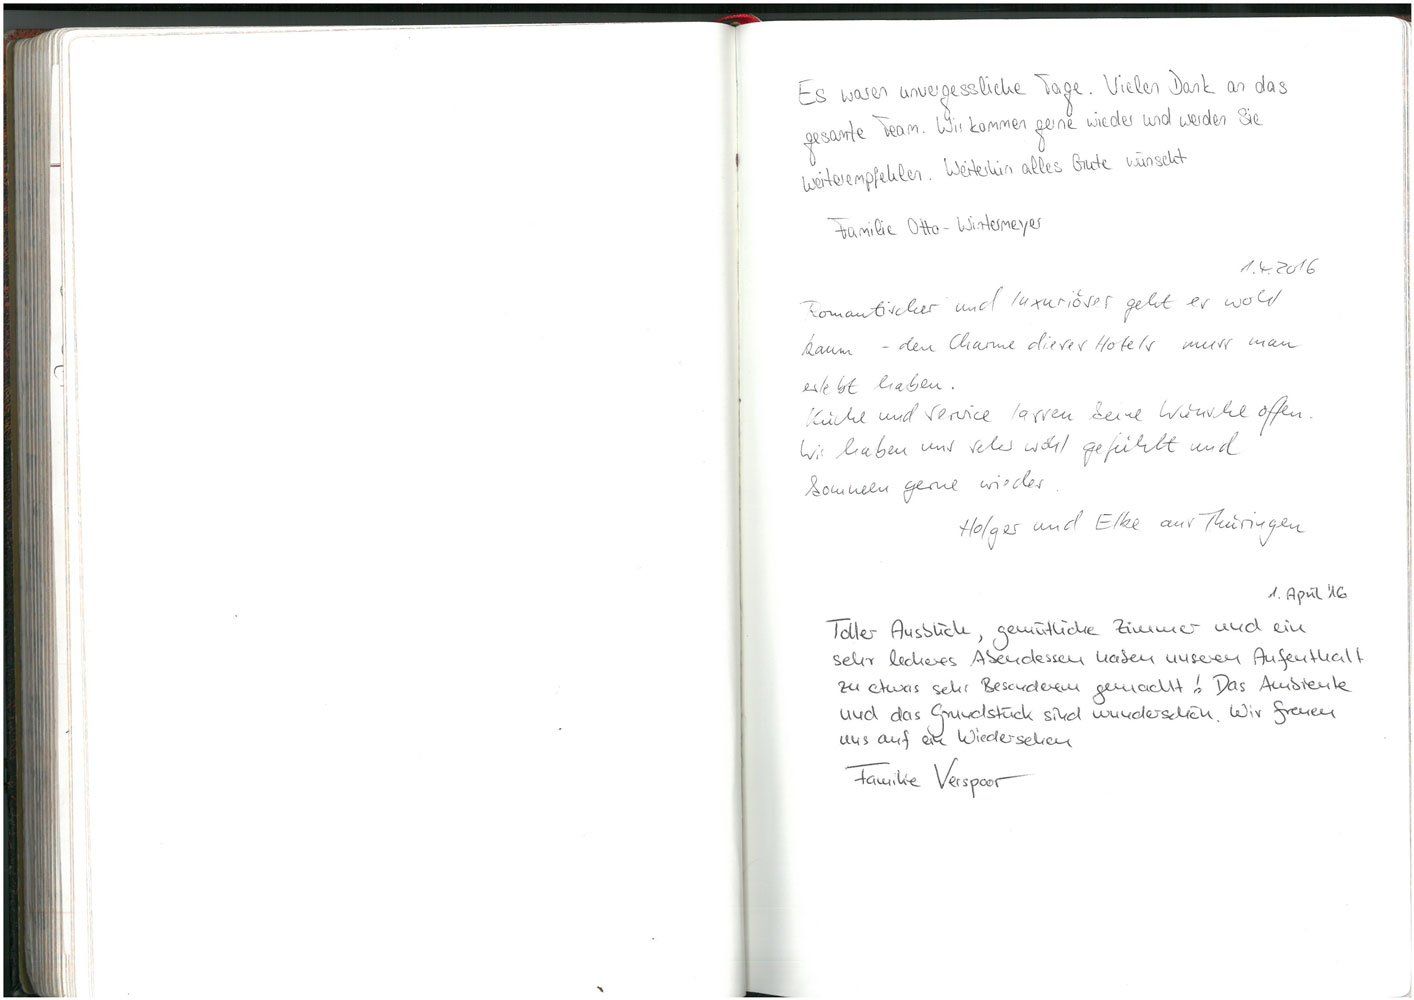 Es waren unvergessliche Tage. Vielen Dank an das
gesamte Team. Wir kommen gerne wieder und werden Sie
weiterempfehlen. Weiterhin alles Gute wünscht
Familie Otto-Wintermeyer
1.4.2016
Romantischer und luxuriöser geht es wohl
kaum - den Charme dieses Hotels muss man
erlebt haben.
Küche und Service lassen keine Wünsche offen.
Wir haben uns sehr wohl gefühlt und
kommen gerne wieder.
Holger und Elke aus Thüringen
1. April '16
Toller Ausblick, gemütliche Zimmer und ein
sehr leckeres Abendessen haben unseren Aufenthalt
zu etwas sehr Besonderem gemacht! Das Ambiente
und das Grundstück sind wunderschön. Wir freuen
uns auf ein Wiedersehen
Familie Verspoor